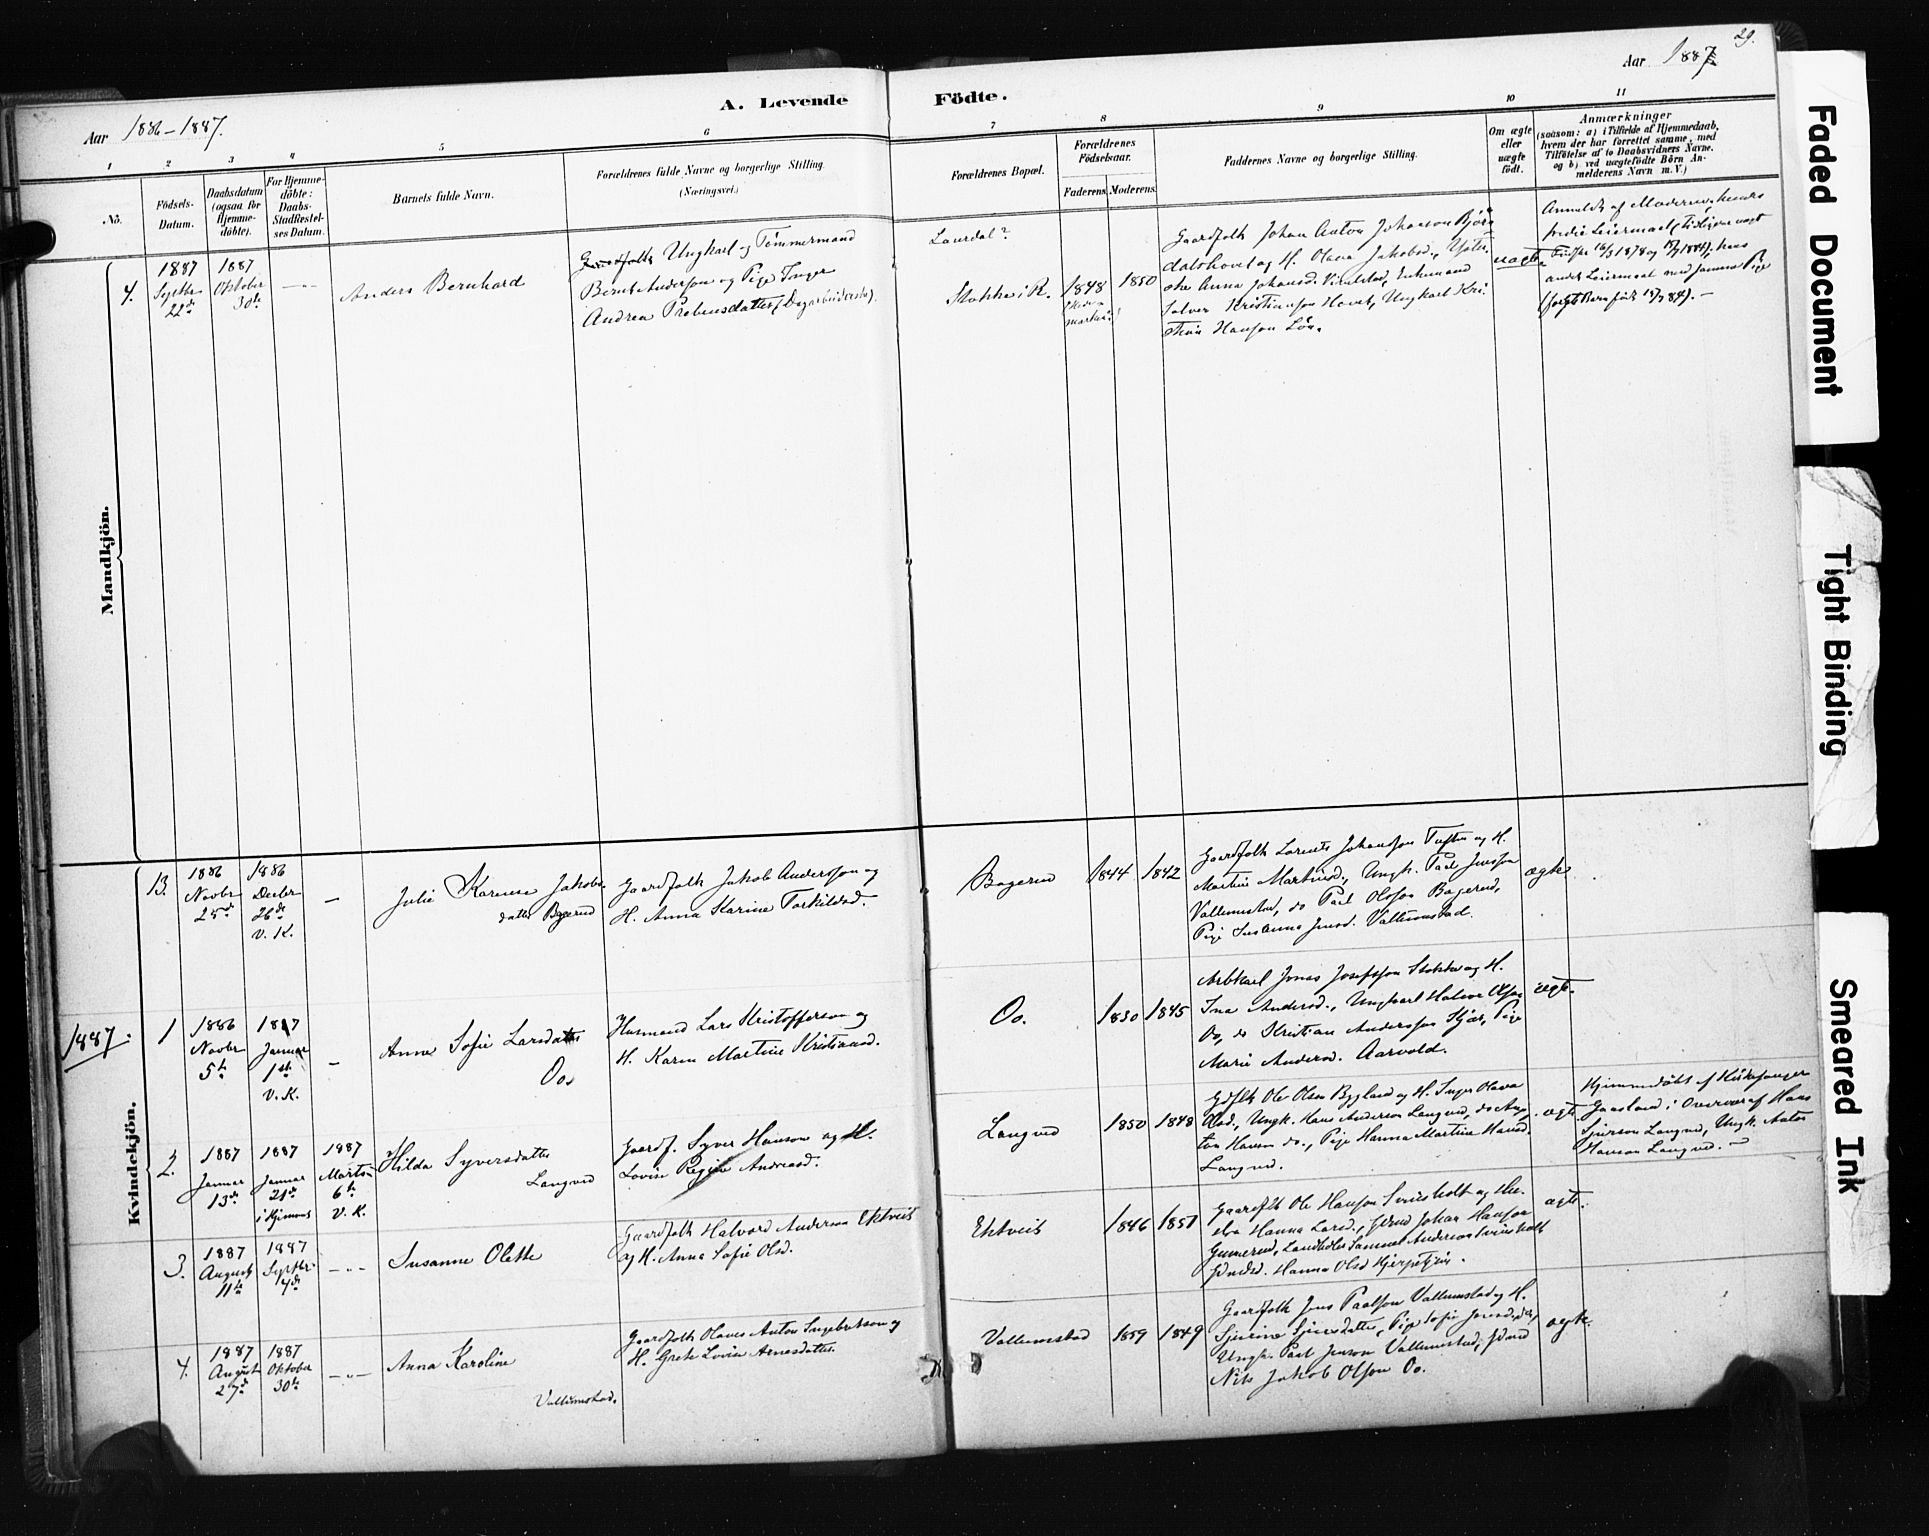 29.
Aar 1886–1887.
A. Levende Födte.
Aar 1887
1 2 3 4 5 6 7 8 9 10 11
Nö.
Födsels-Datum.
Daabsdatum (ogsaa for Hjemmedöbte).
For Hjemmedöbte: Daabs-Stadfæstelses Datum.
Barnets fulde Navn.
Forældrenes fulde Navne og borgerlige Stilling. (Næringsvei.)
Forældrenes Bopæl.
Forældrenes Födselsaar.
Faderens. Moderens.
Faddernes Navne og borgerlige Stilling.
Om ægte eller uægte födt.
Anmærkninger
(saasom: a) i Tilfælde af Hjemmedaab,
hvem der har forrettet samme, med
Tilföielse af to Daabsvidners Navne,
og b) ved uægtefödte Börn An-
melderens Navn m. V.)
Mandkjön.
4.
1887 Septbr 22de
1887 Oktober 30te
Anders Bernhard
Gaardfolk Ungkarl og Tömmermand
Bernt Anderson og Pige Inger
Andrea Prebensdatter (Dagarbeiderske).
Laurdal?
Stokke i R.
1848
1850
Gaardfolk Johan Anton Johanson
og H. Olava Jakobsd.,
Anna Johansd. Vikelstad, Enkemand
Solver Kristianson Hovet, Ungkarl Kri-
stian Hanson Löv.
uægte
Anmeldt af Moderen, hendes
tredie Leiermaal
16/3 1878 og 1884), hans
andet Leiermaal med samme Pige
Kvindekjön.
13.
1886 Novbr 25de
1886 Decbr 26de V. K.
–
Julie Karense Jakobs-
datter Bagerud
Gaardfolk Jakob Andersson og
H. Anna Karine Torkildsd.
Bagerud
1844 1842
Gaardfolk Lorents Johansson Tufte og H.
Martine Martinsd., Ungk. Paal Jensson
Vallumstad, do Paul Olsson Bagerud,
Pige Susanna Jensd. Vallumstad.
ægte
1887:
1
1886 Novbr 5te
1887 Januar 1ste V. K.
–
Anne Sofie Larsdatter
Oos
Husmand Lars Kristofferson og
H. Karen Martine Kristiansd.
Oo.
1830 1845
Arbkarl Jonas Josefsson Stokke og H.
Ina Andersd., Ungkarl Halvor Olsson
Oo, do Kristian Andersson Kjær, Pige
Marie Andersd. Aarvold.
ægte.
2.
1887 Januar 13de
1887 Januar 21de i Hjemmet
1887 Martii 6te V. K.
Hilda Syversdatter
Langved
Gaardf. Syver Hanson og H.
Lovise Regine Andreasd.
Langved
1850 1848
Gdflk Ole Olsen Bygland og H. Inger Olava
Olsd., Ungk. Hans Anderson Langved, do An-
ton Hanson do., Pige Hanna Martine Hansd.
Langved.
ægte
Hjemmedöbt af Kirkesanger
Gaasland i Overvær af Hans
Syverson Langved, Ungk. Anton
Hanson Langved. –
3.
1887 August 11te
1887 Septbr 4de
– „ –
Susanne Olette
Gaardfolk Halvord Anderson Ektveit
og H. Anna Sofie Olsd.
Ektveit
1846 1851
Gaardflk Ole Hanson Svinsholt og Hu-
stru Hanna Larsd., Johan Hanson
Gumerud, Samuel Anderson Svinsholt
Hanna Olsd.
ægte.
4.
1887 August 27de
1887 Oktober 30te
– „ –
Anna Karoline
Vallumstad.
Gaardfolk Olaves Anton Ingebretson og
H. Grete Lovise Arnesdatter.
Vallumstad
1859 1849
Gaardfolk Jens Paalson Vallumstad og H.
Sjurine Sjursdatter, Pige Sofie Jensd. do,
Ungk. Paal Jenson Vallumstad,
Nils Jakob Olson Oo.
ægte.
Faded Document
Tight Binding
Smeared Ink